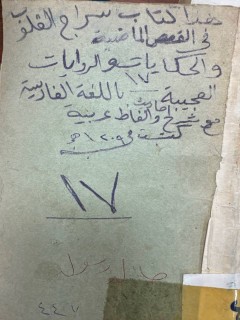 هذا كتاب سراج القلوب
في القصص الماضية
والحكايات والروايات
١٧
العجيبة باللغة الفارسية
مع شرح أحاديث والفاظ عربية
كتبت في ١٢٠٩ هـ
١٧
٤٤٧